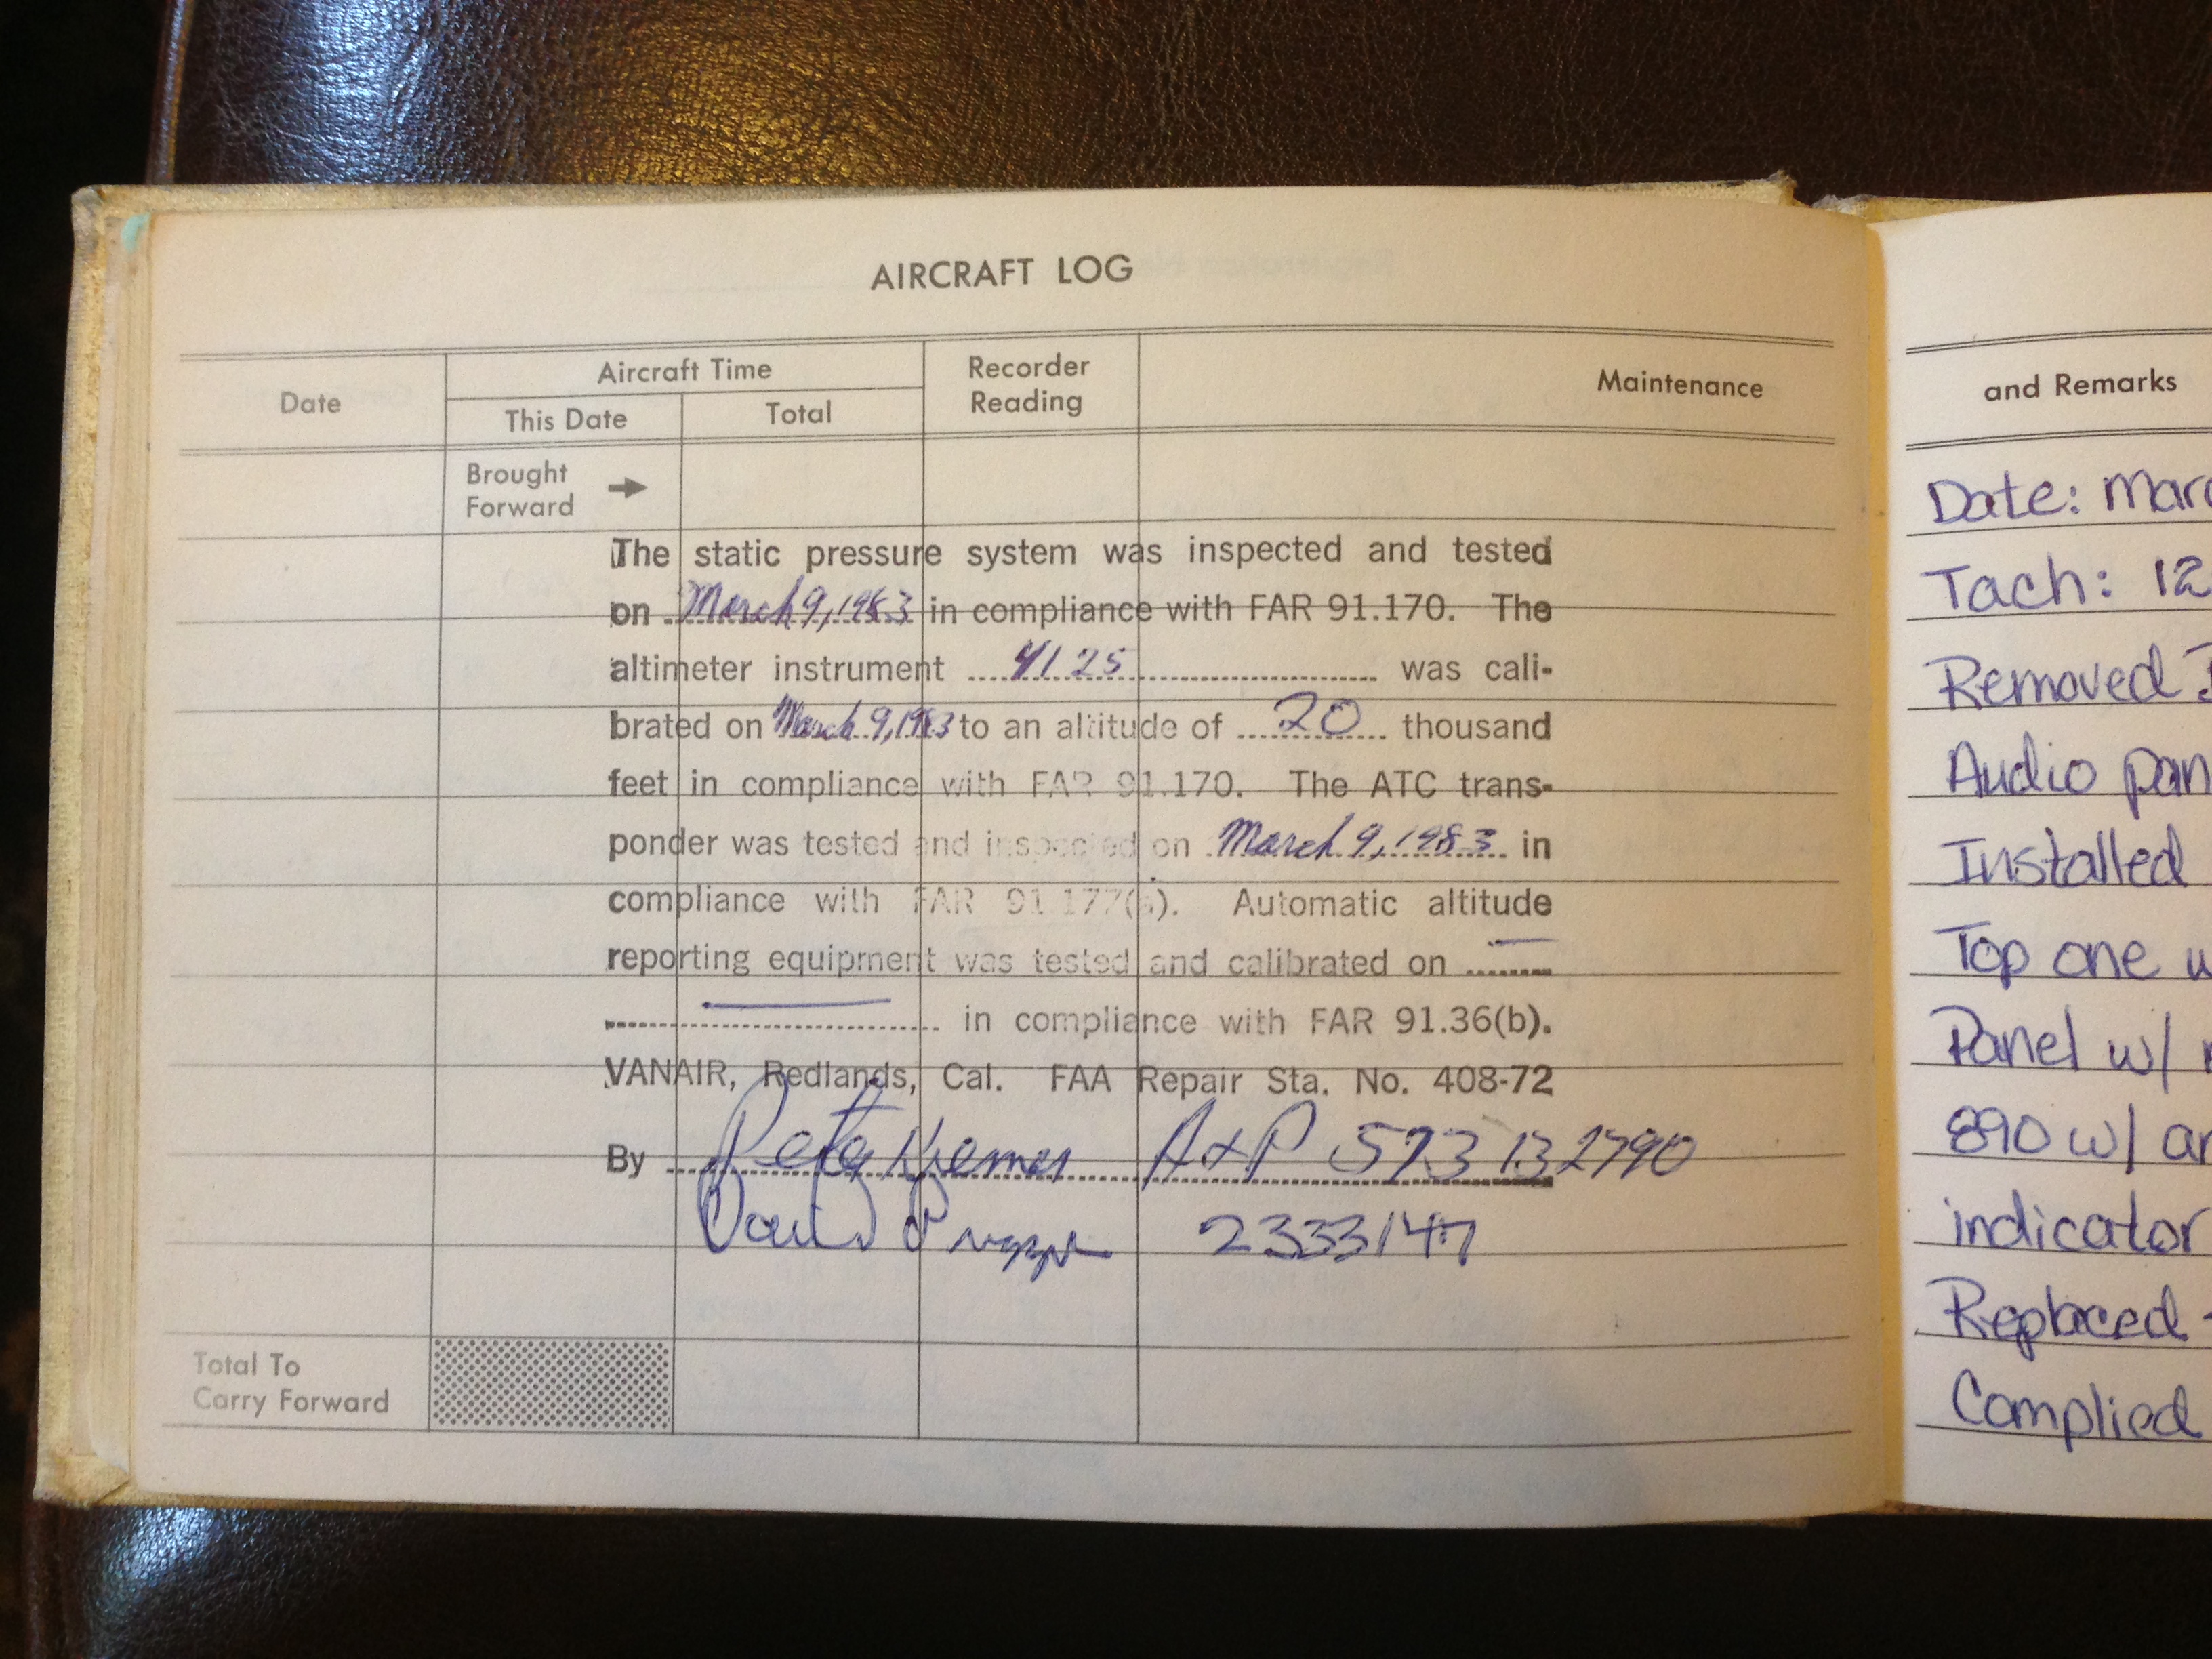 AIRCRAFT LOG
Date
Aircraft Time
This Date
Total
Recorder
Reading
Maintenance
Brought
Forward
The static pressure system was inspected and tested
on March 9, 1983 in compliance with FAR 91.170. The
altimeter instrument 4125 was cali-
brated on March 9, 1983 to an altitude of 20 thousand
feet in compliance with FAR 91.170. The ATC trans-
ponder was tested and inspected on March 9, 1983 in
compliance with FAR 91.177(a). Automatic altitude
reporting equipment was tested and calibrated on
in compliance with FAR 91.36(b).
VANAIR, Redlands, Cal. FAA Repair Sta. No. 408-72
By A&P 573132790
David 2333147
Total To
Carry Forward
and Remarks
Date: Marc
Tach: 12
Removed
Audio pan
Installed
Top one w
Panel w/
890 w/ an
indicator
Replaced
Complied